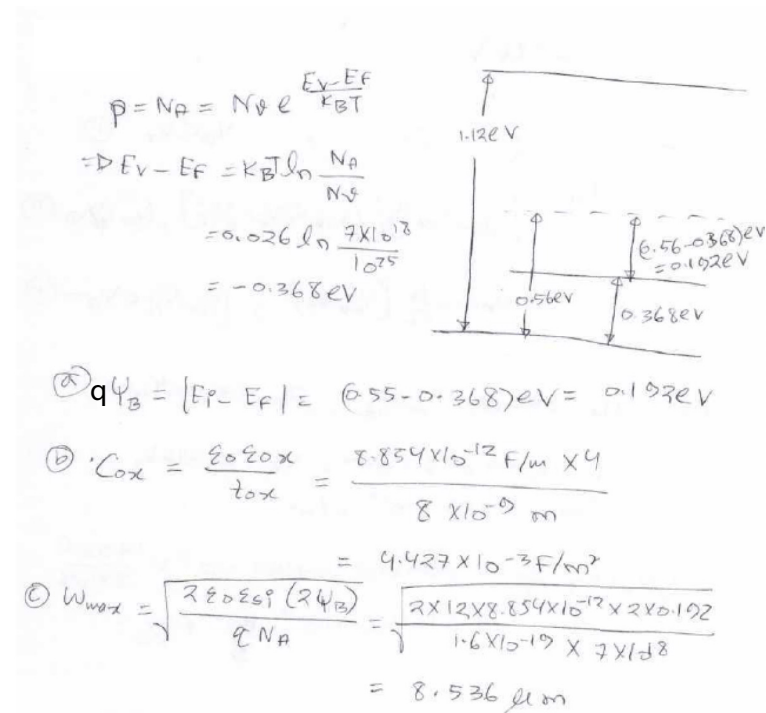 p = N_A = N_v e^{(E_V - E_F)/K_BT}
=> E_V - E_F = K_BT ln N_A/N_v
= 0.026 ln 7X10^18/10^25
= -0.368 eV
1.12 eV
(0.56-0.368) eV
= 0.192 eV
0.56 eV
0.368 eV
(a) qΨ_B = |E_i - E_F| = (0.55 - 0.368) eV = 0.192 eV
(b) C_ox = ε_0 ε_ox / t_ox = 8.854 X 10^-12 F/m X 4 / 8 X 10^-9 m
= 4.427 X 10^-3 F/m²
(c) W_max = √(2 ε_0 ε_si (2Ψ_B) / q N_A) = √(2X12X8.854X10^-12 X 2X0.192 / 1.6 X 10^-19 X 7X10^18)
= 8.536 μm